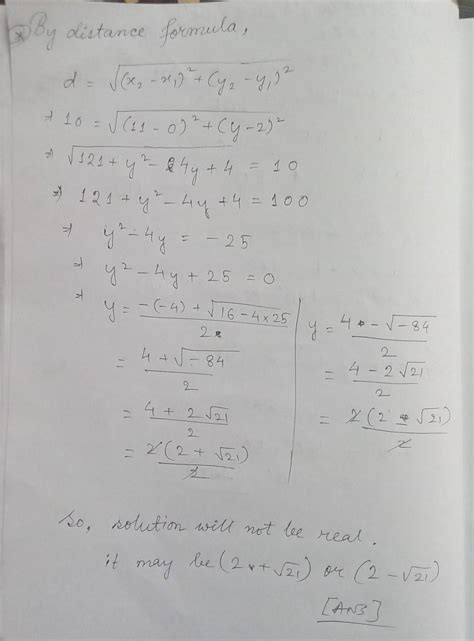 By distance formula,
d = √(x₂ - x₁)² + (y₂ - y₁)²
⇒ 10 = √(11 - 0)² + (y - 2)²
⇒ √121 + y² - 4y + 4 = 10
⇒ 121 + y² - 4y + 4 = 100
⇒ y² - 4y = -25
⇒ y² - 4y + 25 = 0
⇒ y = -(-4) + √16 - 4×25 / 2
= 4 + √-84 / 2
= 4 + 2√21 / 2
= 2(2 + √21) / 2
y = 4 - √-84 / 2
= 4 - 2√21 / 2
= 2(2 - √21) / 2
So, solution will not be real.
it may be (2 + √21) or (2 - √21)
[ANS]